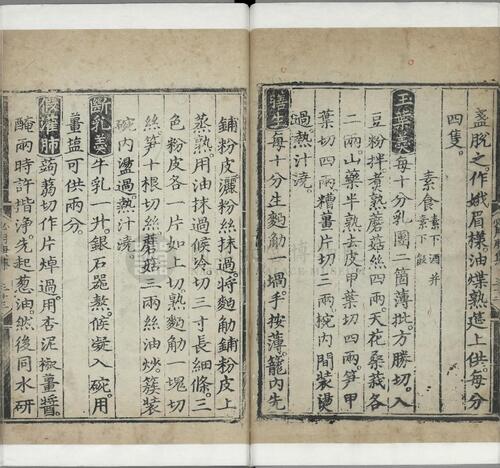 盞脫之作娥眉樣。油煠熟筵上供。每分
四隻。
素食 素下酒并素下飯
玉葉羹 每十分乳團二箇薄批。方勝切。入
豆粉拌煮熟蘑菇絲四兩。天花桑莪各
二兩山藥半熟去皮甲葉切四兩。笋甲
葉切四兩糟薑片切三兩。椀內間裝燙
過。熱汁澆。
膳生 每十分生麪觔一堝。手按薄。籠內先
鋪粉皮灑粉絲抹過。將麪觔鋪粉皮上
蒸熟。用油抹過候冷。切三寸長細條。三
色粉皮各一片如上切熟麪觔一塊切
絲笋十根切絲。蘑菇三兩絲油炒。簇裝
碗內盪過。熱汁澆。
斷乳羹 牛乳一升。銀石器熬。候凝入碗。用
薑塩可供兩分。
假灌肺 蒟蒻切作片焯過。用杏泥椒薑醬
醃兩時許揩淨。先起葱油。然後同水研